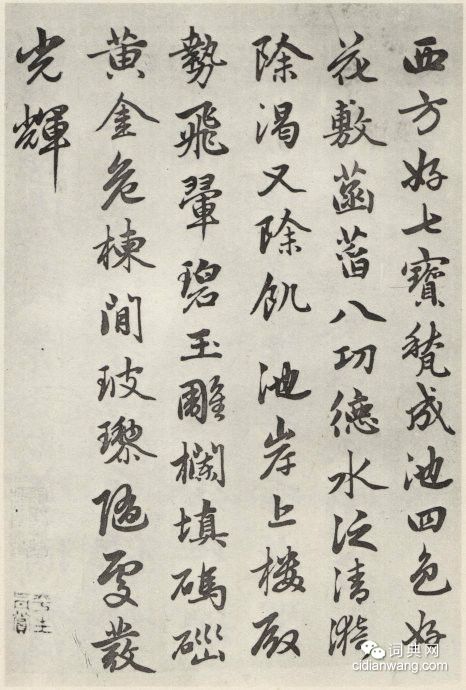 西方好七寶甃成池四色好
花敷菡萏八功德水泛清漪
除渴又除飢 池岸上樓殿
勢飛翬碧玉雕欄填碼碯
黃金危棟間玻瓈隨處發
光輝
词典网
cidianwang.com